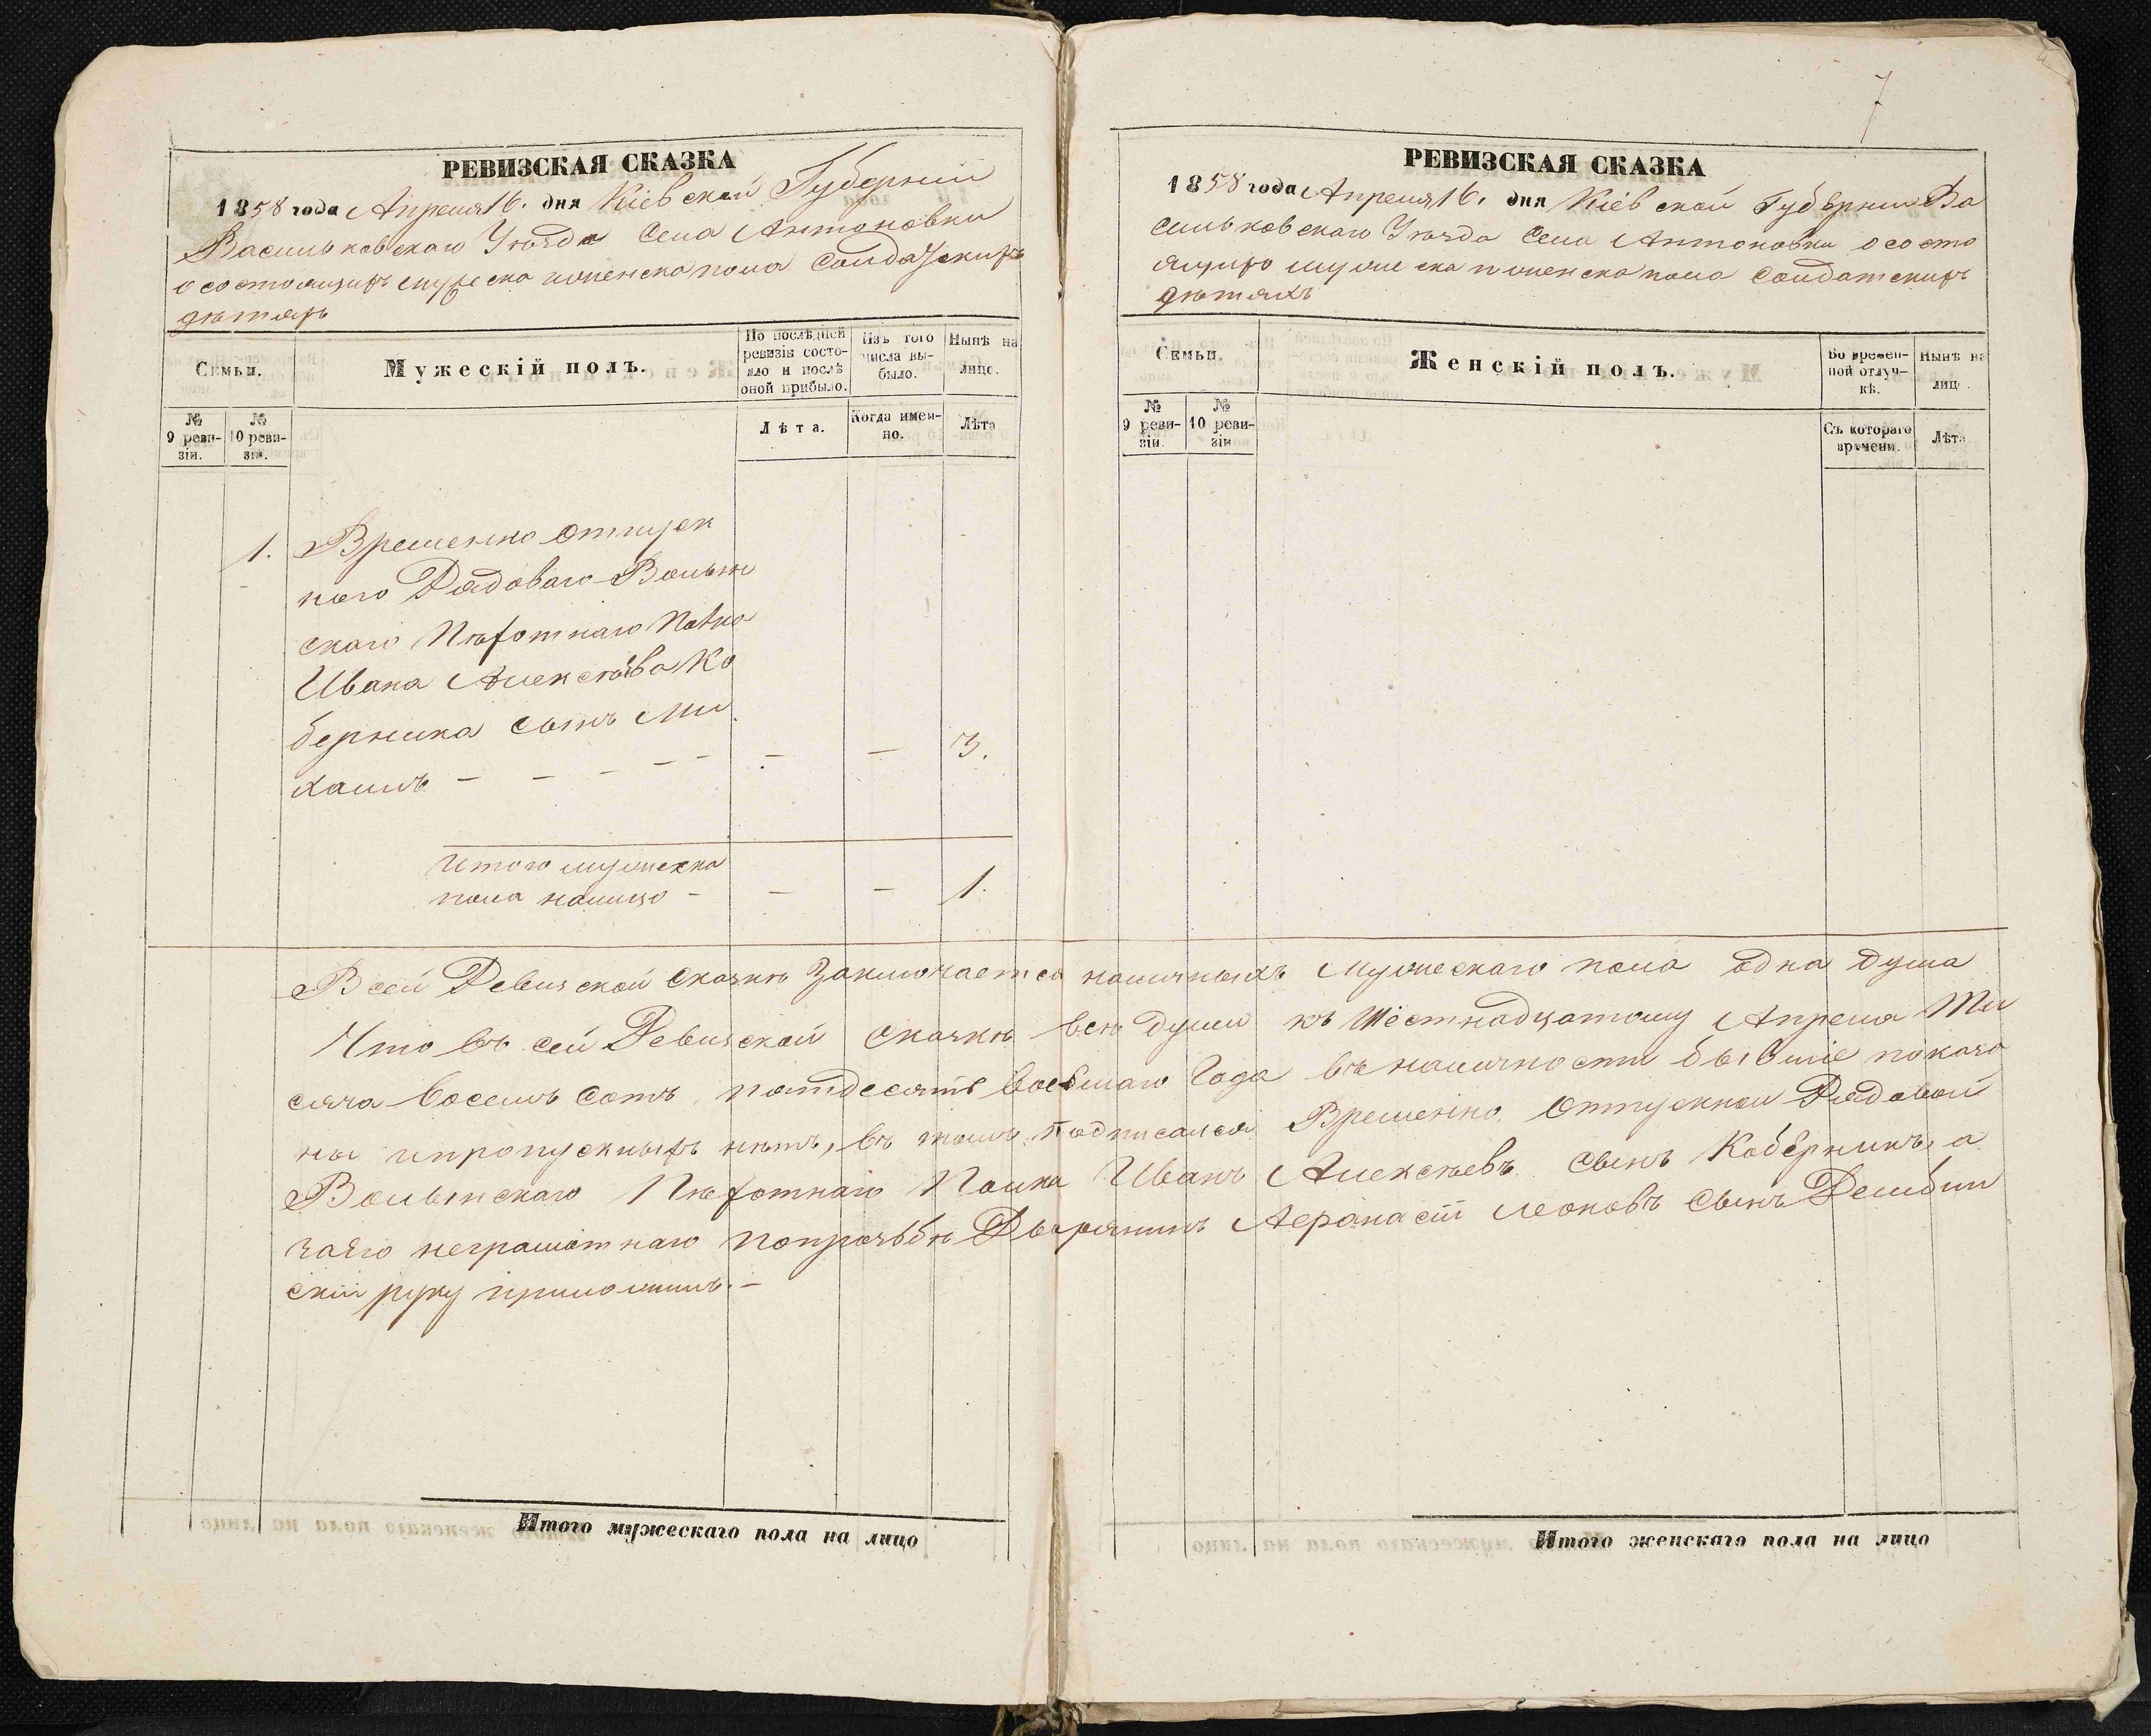 РЕВИЗСКАЯ СКАЗКА
1858 года Апреля 16. дня Кіевской Губерніи
Васильковскаго Уѣзда Села Антоновки
о состоящихъ мужеска и женска пола Солдатскихъ
дѣтяхъ
Семьи.
Мужескій полъ.
По послѣдней ревизіи состояло и послѣ оной прибыло.
Изъ того числа выбыло.
Нынѣ на лице.
№ 9 ревизіи.
№ 10 ревизіи.
Лѣта.
Когда именно.
Лѣта
1. Временно отпуск
ного Рядоваго Волын
скаго Пѣхотнаго Полка
Ивана Алексѣева Ко
берника сынъ Ми
хаилъ - - - - - - - 3.
Итого мужеска
пола налицо - - - 1.
7
РЕВИЗСКАЯ СКАЗКА
1858 года Апреля 16. дня Кіевской Губерніи Ва
сильковскаго Уѣзда Села Антоновки о состо
ящихъ мужеска и женска пола Солдатскихъ
дѣтяхъ
Семьи.
Женскій полъ.
Во временной отлучкѣ.
Нынѣ на лице.
№ 9 ревизіи.
№ 10 ревизіи.
Съ котораго времени.
Лѣта.
В сей Ревизской Сказкѣ Заключается наличныхъ Мужескаго пола одна душа
Что въ сей Ревизской сказкѣ всѣ души къ Шестнадцатому Апреля Ты
сяча восемь сотъ пятдесятъ восьмаго Года въ наличности бывшіе показа
ны и пропускныхъ нѣтъ, въ томъ подписался Временно Отпускной Рядовой
Волынскаго Пѣхотнаго Полка Иванъ Алексѣевъ сынъ Коберникъ, а
заего неграмотнаго попрозьбѣ Дворянинъ Афанасій Леоновъ Сынъ Дембиц
скій руку приложилъ.-
Итого мужескаго пола на лицо
Итого женскаго пола на лицо